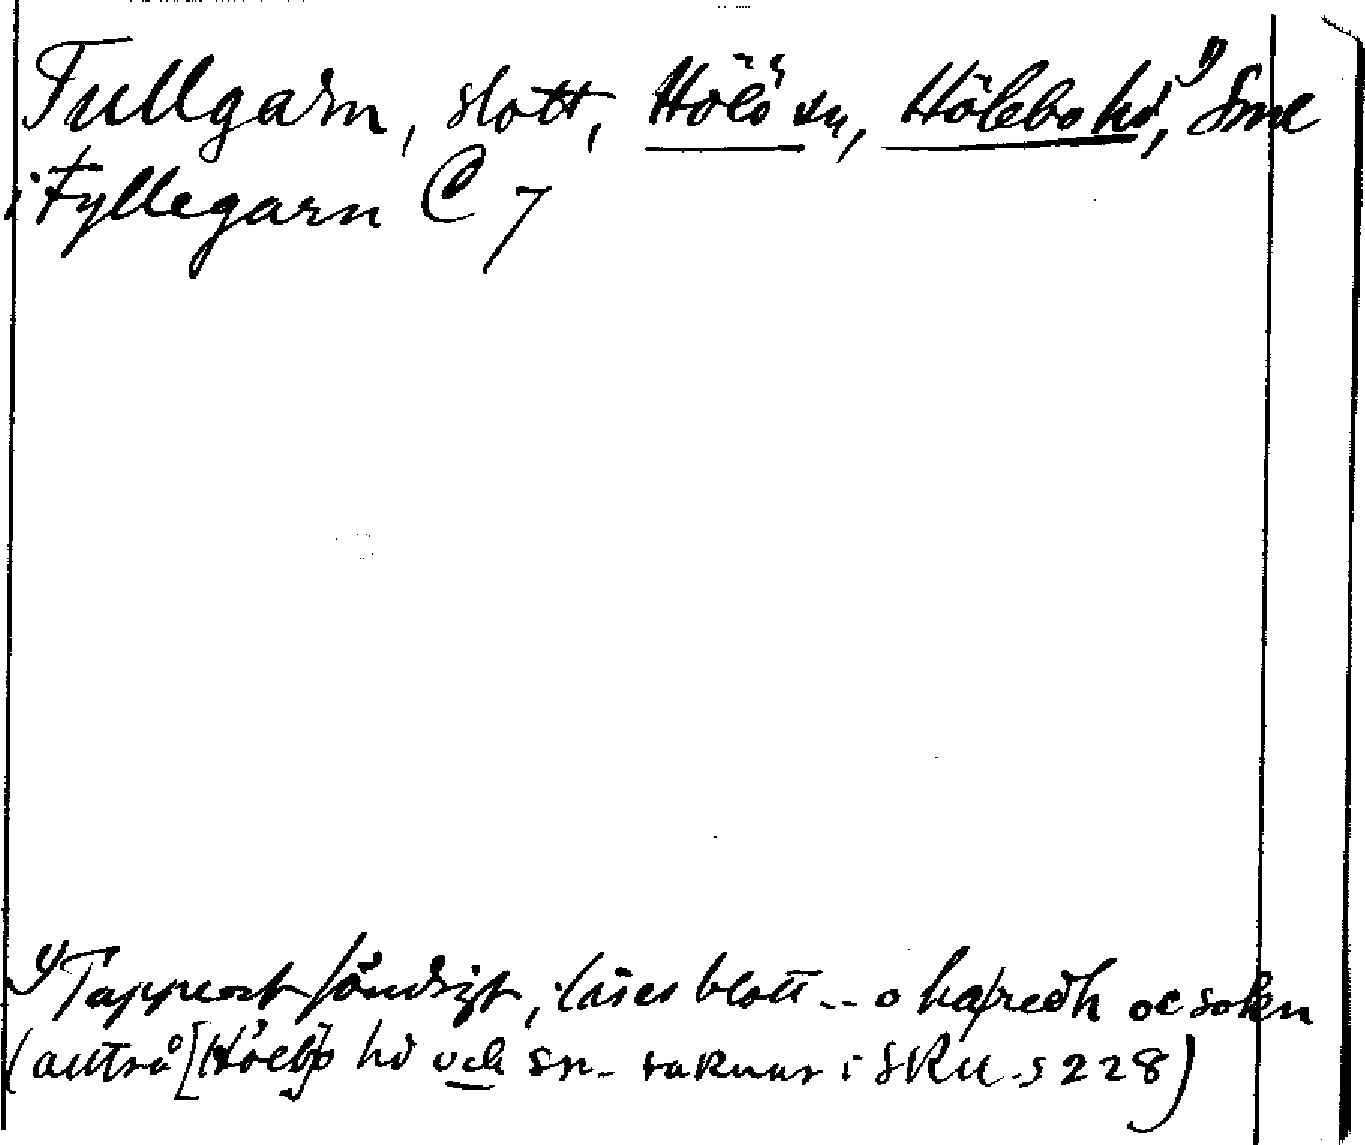 Tullgarn, slott, Hölö sn, Hölebo hd,¹⁾ Sml
i Fyllegarn C 7
¹⁾ Papperet söndrigt, läses blott -- o hæredh oc soken
(alltså [Höleb]o hd och sn. saknas i SRU s 228)